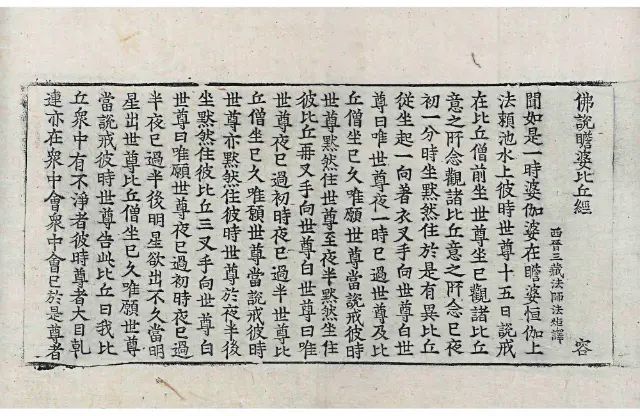 佛說瞻婆比丘經 容
西晉三藏法師法炬譯
聞如是一時婆伽婆在瞻婆恒伽上
法賴池水上彼時世尊十五日說戒
在比丘僧前坐世尊坐已觀諸比丘
意之所念觀諸比丘意之所念已夜
初一分時坐黙然住於是有異比丘
從坐起一向著衣叉手向世尊白世
尊曰唯世尊夜一時已過世尊及比
丘僧坐已久唯願世尊當說戒彼時
世尊黙然住世尊至夜半黙然坐住
彼比丘再叉手向世尊白世尊曰唯
世尊夜已過初時夜已過半世尊比
丘僧坐已久唯願世尊當說戒彼時
世尊亦黙然住彼時世尊於夜半後
坐黙然住彼比丘三叉手向世尊白
世尊曰唯願世尊夜已過初時夜已過
半夜已過半後明星欲出不久當明
星出世尊比丘僧坐已久唯願世尊
當說戒彼時世尊告此比丘曰我比
丘衆中有不淨者彼時尊者大目乹
連亦在衆中會衆中會已於是尊者